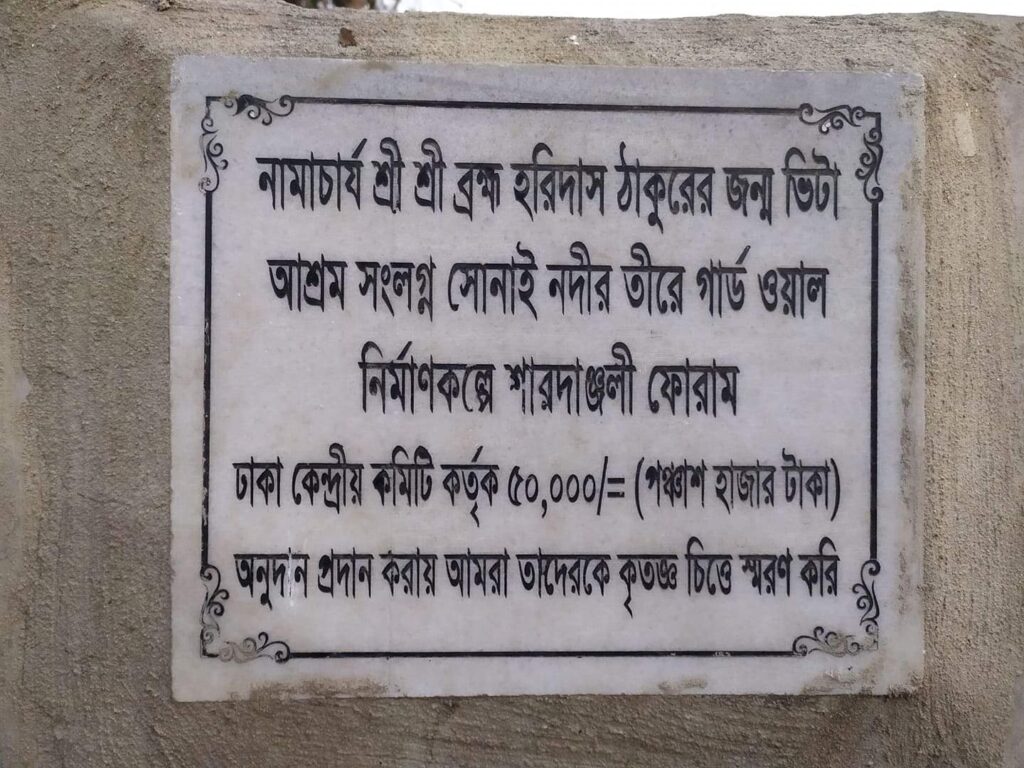 নামাচার্য শ্রী শ্রী ব্রহ্ম হরিদাস ঠাকুরের জন্ম ভিটা
আশ্রম সংলগ্ন সোনাই নদীর তীরে গার্ড ওয়াল
নির্মাণকল্পে শারদাঞ্জলী ফোরাম
ঢাকা কেন্দ্রীয় কমিটি কর্তৃক ৫০,০০০/= (পঞ্চাশ হাজার টাকা)
অনুদান প্রদান করায় আমরা তাদেরকে কৃতজ্ঞ চিত্তে স্মরণ করি